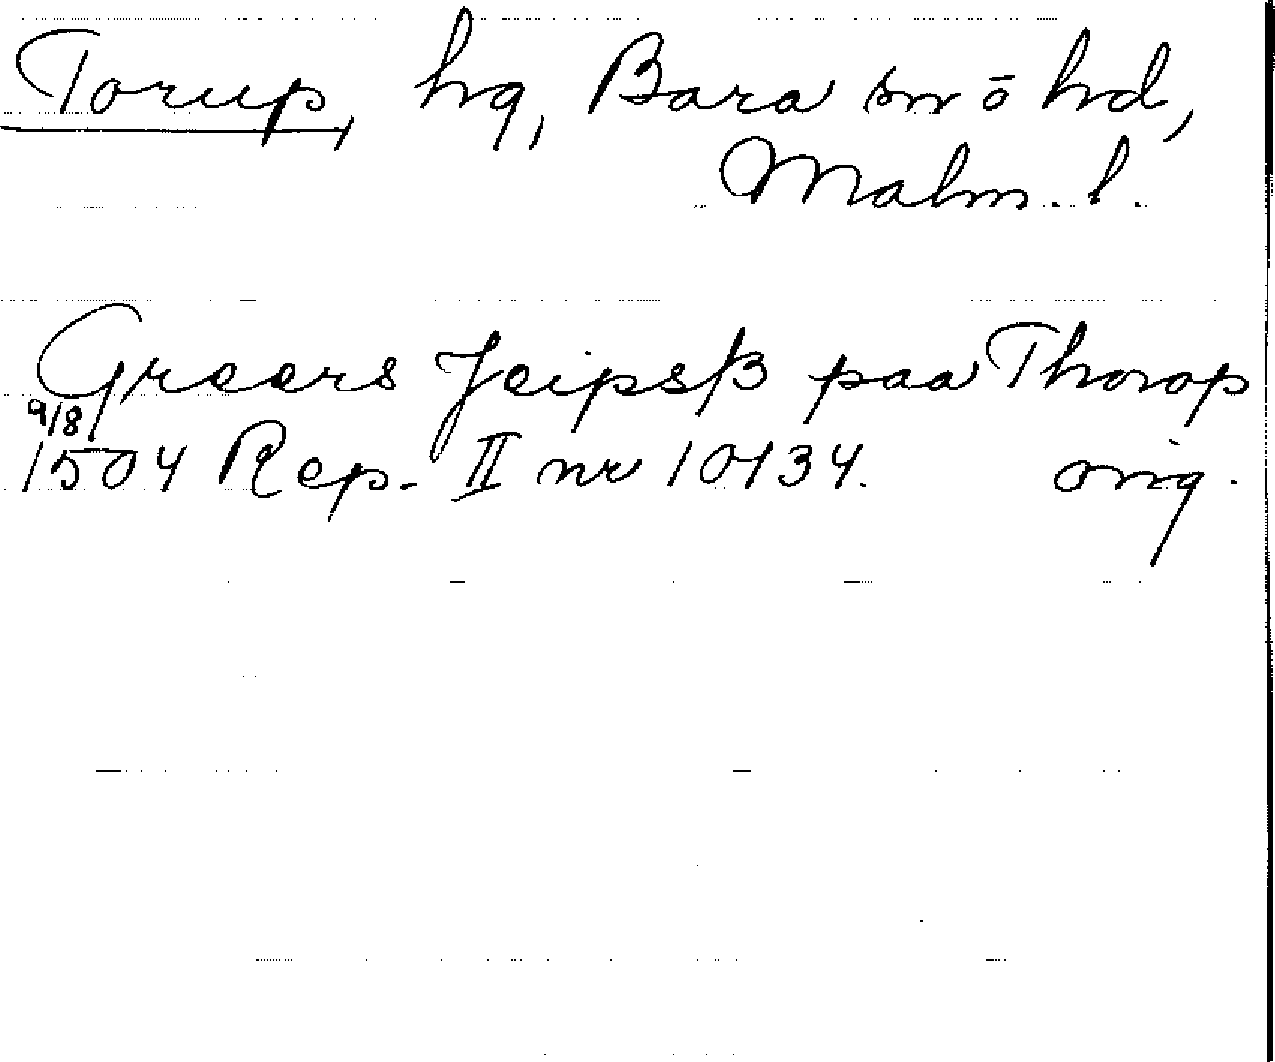 Torup, hg, Bara sn o hd,
Malm. l.
Greers Jeipsß paa Thorop
9/8
1504 Rep. II nr 10134. orig.